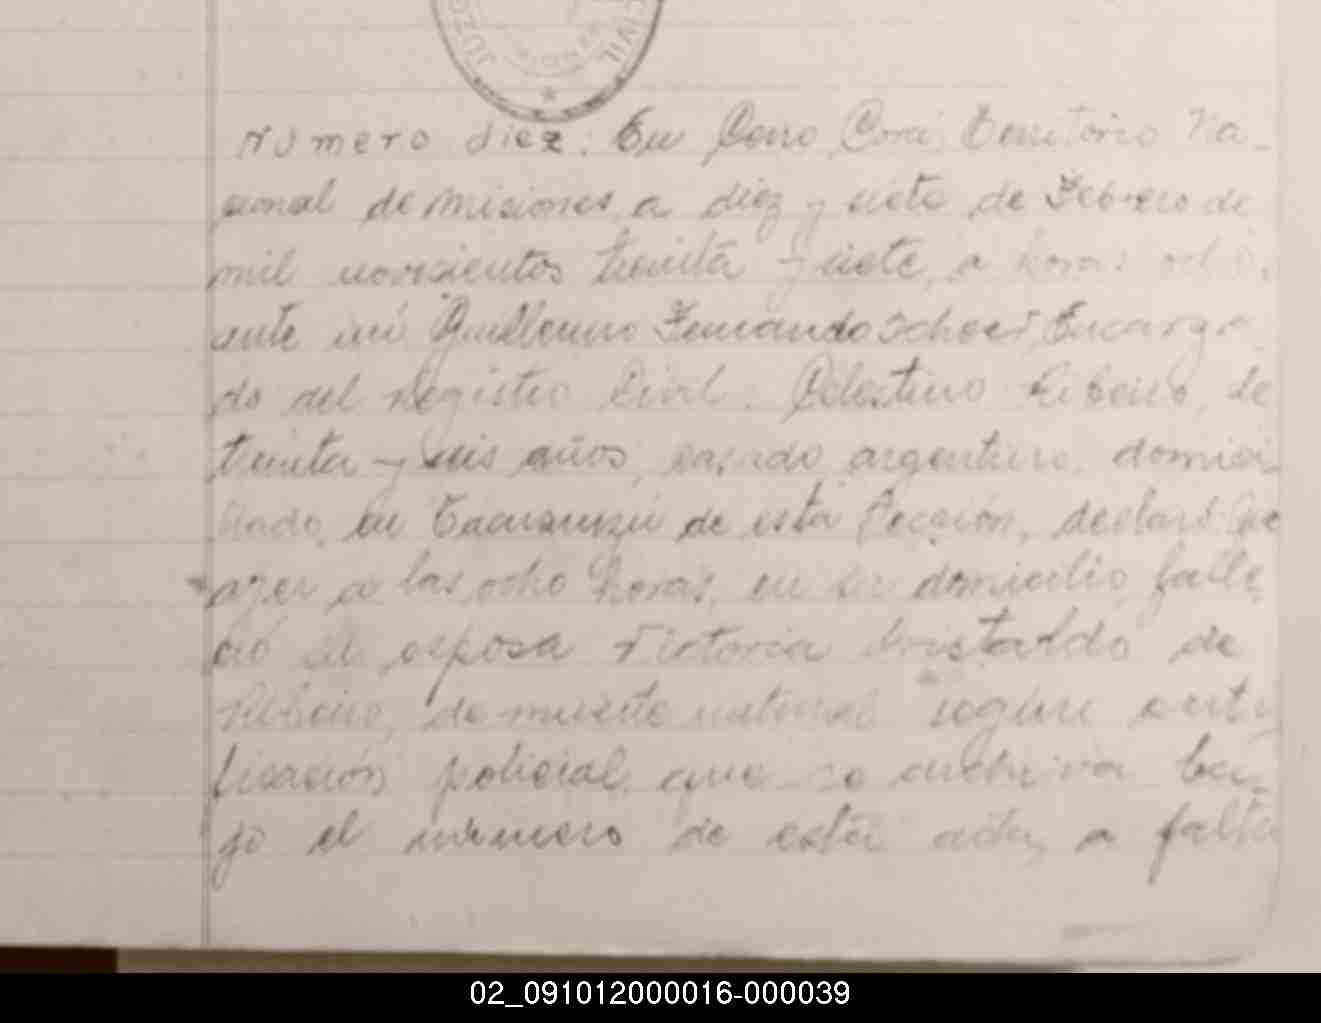 JUZG CIVIL
Numero diez. En Cerro Corá, Territorio Na-
sional de Misiones, a diez y siete de Febrero de
mil novesientos treinta y siete, a horas
ante mi Guillermo Fernando Scheer, Encarga
do del Registro Civil. Celestino Ribeiro, de
treinta y seis años, casado, argentino, domisi-
liado, en Tacuaruzú de esta Seccion, declaró: Que
ayer a las ocho horas, en su domicilio, falle
ció su esposa Victoria Cristaldo de
Ribeiro, de muerte natural segun certi
ficación policial, que se archiva ba-
jo el número de esta acta, a falta
02_091012000016-000039